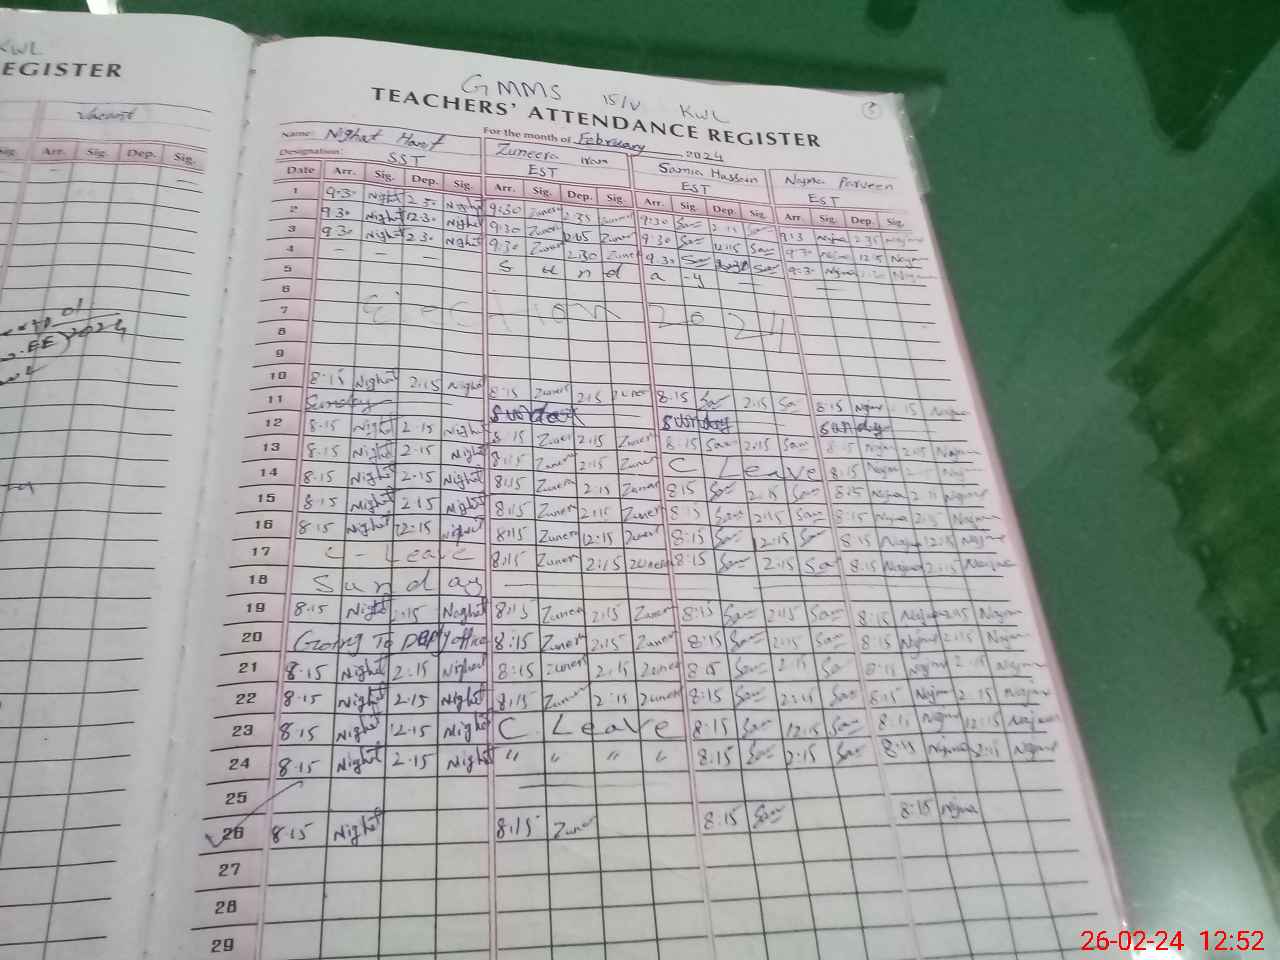 KWL
EGISTER
Vacant
Sig. Arr. Sig. Dep. Sig.
GMMS 15/V KWL
3
TEACHERS' ATTENDANCE REGISTER
Name: Nighat Hanif For the month of February 2024
Zuneera Samia Hussain Najma Parveen
Designation: SST EST EST EST
Date Arr. Sig. Dep. Sig. Arr. Sig. Dep. Sig. Arr. Sig. Dep. Sig. Arr. Sig. Dep. Sig.
1 9:30 Nighat 2:30 Nighat 9:30 Zunera 2:35 Zunera 9:30 Sam 2:15 Sam 9:3 Najma 2:35 Najma
2 9:30 Nighat 12:30 Nighat 9:30 Zunera Zunera 9:30 Sam 12:15 Sam 9:30 Najma 12:15 Najma
3 9:30 Nighat 2:30 Nighat 9:30 Zunera 2:30 Zunera 9:30 Sam Sam 9:30 Najma Najma
4 — — — Sunday —
5
6 Election 2024
7
8
9
10 8:15 Nighat 2:15 Nighat 8:15 Zunera 2:15 Zunera 8:15 Sam 2:15 Sam 8:15 Najma 15 Najma
11 Sunday Sunday Sunday Sunday
12 8:15 Nighat 2:15 Nighat 8:15 Zuner 2:15 Zuner 8:15 Sam 2:15 Sam 8:15 Najma 2:15 Najma
13 8:15 Nighat 2:15 Nighat 8:15 Zuner 2:15 Zuner C Leave 8:15 Najma 2:15 Najma
14 8:15 Nighat 2:15 Nighat 8:15 Zuner 2:15 Zuner 8:15 Sam 2:15 Sam 8:15 Najma 2:15 Najma
15 8:15 Nighat 2:15 Nighat 8:15 Zuner 2:15 Zuner 8:15 Sam 2:15 Sam 8:15 Najma 2:15 Najma
16 8:15 Nighat 12:15 Nighat 8:15 Zuner 12:15 Zuner 8:15 Sam 12:15 Sam 8:15 Najma 12:15 Najma
17 C - Leave 8:15 Zuner 2:15 Zunera 8:15 Sam 2:15 Sam 8:15 Najma 2:15 Najma
18 Sunday
19 8:15 Nighat 2:15 Nighat 8:15 Zuner 2:15 Zuner 8:15 Sam 2:15 Sam 8:15 Najma 2:15 Najma
20 Going To office 8:15 Zuner 2:15 Zuner 8:15 Sam 2:15 Sam 8:15 Najma 2:15 Najma
21 8:15 Nighat 2:15 Nighat 8:15 Zuner 2:15 Zuner 8:15 Sam 2:15 Sam 8:15 Najma 2:15 Najma
22 8:15 Nighat 2:15 Nighat 8:15 Zuner 2:15 Zuner 8:15 Sam 2:15 Sam 8:15 Najm 2:15 Najma
23 8:15 Nighat 12:15 Nighat C. Leave 8:15 Sam 12:15 Sam 8:15 Najma 12:15 Najma
24 8:15 Nighat 2:15 Nighat " " " " 8:15 Sam 2:15 Sam 8:15 Najma 2:15 Najma
25
26 8:15 Nighat 8:15 Zuner 8:15 Sam 8:15 Najma
27
28
29
26-02-24 12:52